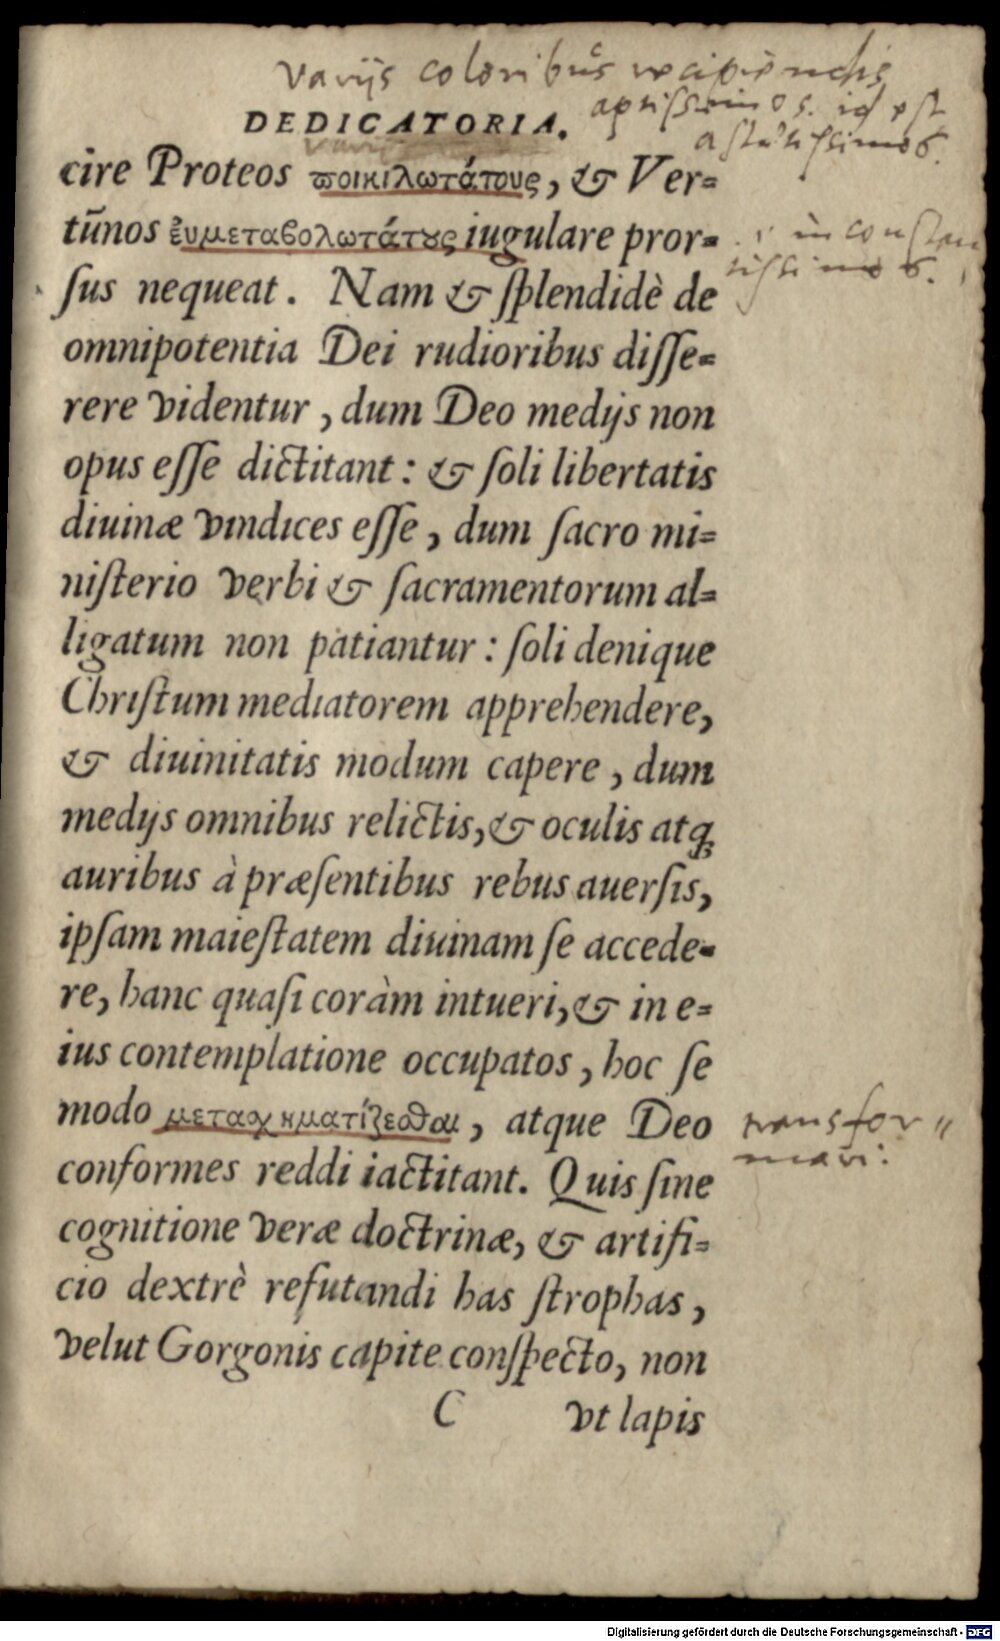 varijs coloribus recipiendis
aptissimos. id est
astutissimos.
DEDICATORIA.
cire Proteos ποικιλωτάτους, & Ver=
tūnos ἐυμεταβολωτάτȣς iugulare pror=
inconstan
tissimos.
ſus nequeat. Nam & ſplendidè de
omnipotentia Dei rudioribus diſſe=
rere videntur, dum Deo medijs non
opus eſſe dictitant: & ſoli libertatis
diuinæ vindices eſſe, dum ſacro mi=
niſterio verbi & ſacramentorum al=
ligatum non patiantur: ſoli denique
Chriſtum mediatorem apprehendere,
& diuinitatis modum capere, dum
medijs omnibus relictis, & oculis atq;
auribus à præſentibus rebus auerſis,
ipſam maieſtatem diuinam ſe accede=
re, hanc quaſi coràm intueri, & in e=
ius contemplatione occupatos, hoc ſe
modo μετασχηματίζεσθαι, atque Deo
transfor"
mari.
conformes reddi iactitant. Quis ſine
cognitione veræ doctrinæ, & artifi=
cio dextrè refutandi has ſtrophas,
velut Gorgonis capite conſpecto, non
C vt lapis
Digitalisierung gefördert durch die Deutsche Forschungsgemeinschaft - DFG